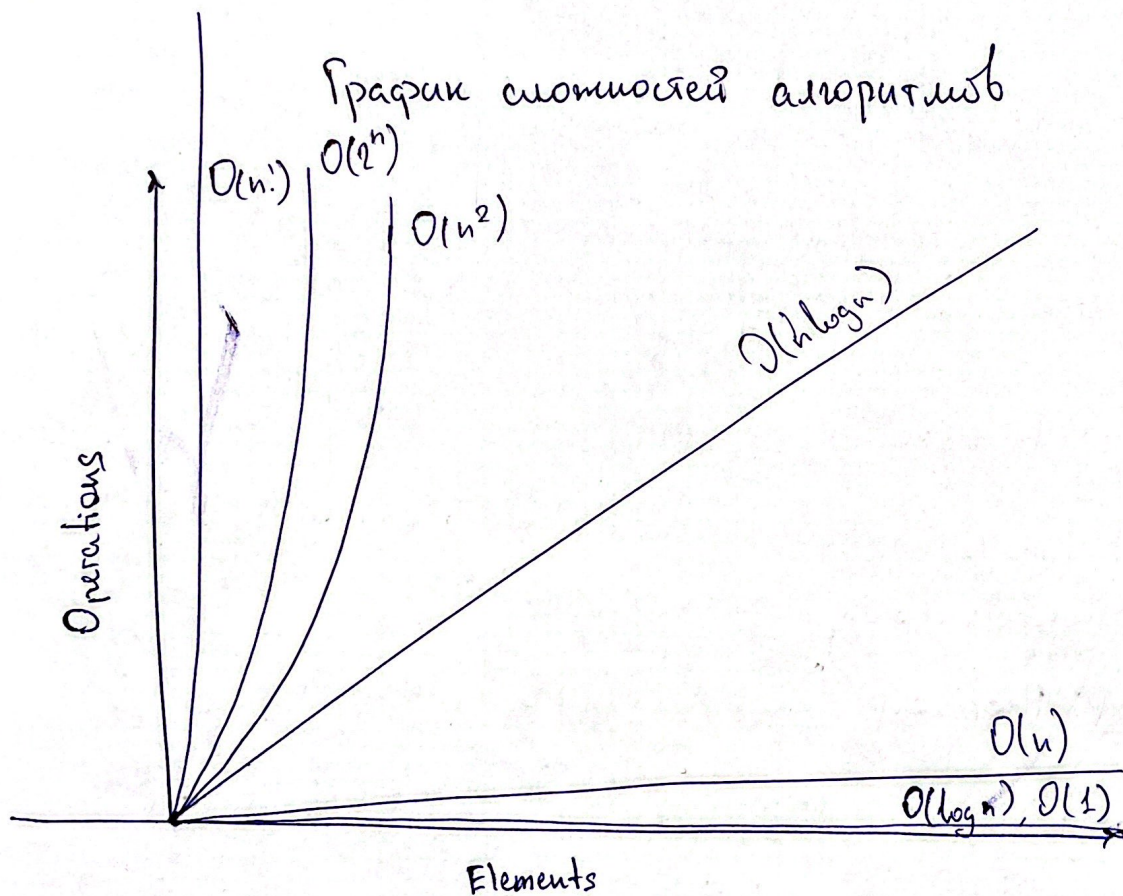 График сложностей алгоритмов
O(n!)
O(2ⁿ)
O(n²)
O(n log n)
Operations
O(n)
O(log n), O(1)
Elements